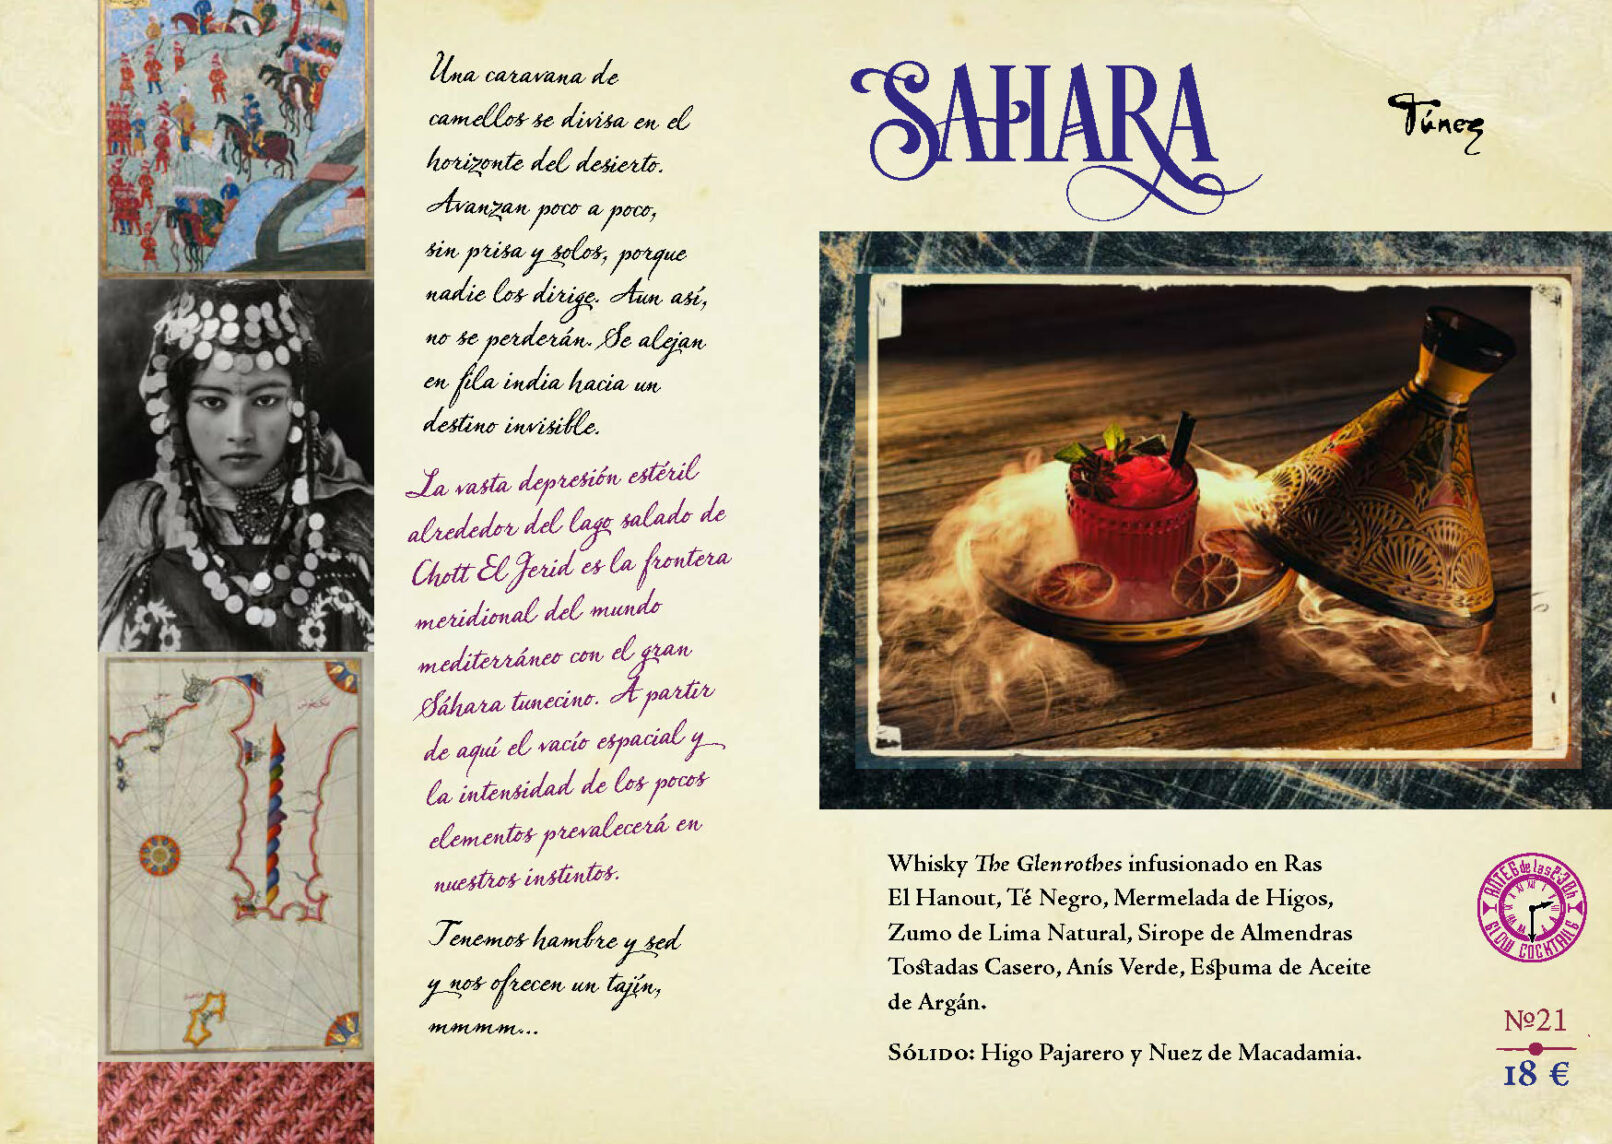 Una caravana de
camellos se divisa en el
horizonte del desierto.
Avanzan poco a poco,
sin prisa y solos, porque
nadie los dirige. Aun así,
no se perderán. Se alejan
en fila india hacia un
destino invisible.
La vasta depresión estéril
alrededor del lago salado de
Chott El Jerid es la frontera
meridional del mundo
mediterráneo con el gran
Sáhara tunecino. A partir
de aquí el vacío espacial y
la intensidad de los pocos
elementos prevalecerá en
nuestros instintos.
Tenemos hambre y sed
y nos ofrecen un tajín,
mmmm...
SAHARA
Túnez
Whisky The Glenrothes infusionado en Ras
El Hanout, Té Negro, Mermelada de Higos,
Zumo de Lima Natural, Sirope de Almendras
Tostadas Casero, Anís Verde, Espuma de Aceite
de Argán.
SÓLIDO: Higo Pajarero y Nuez de Macadamia.
ANTES de las 23:0h
SLOW COCKTAILS
Nº21
18 €